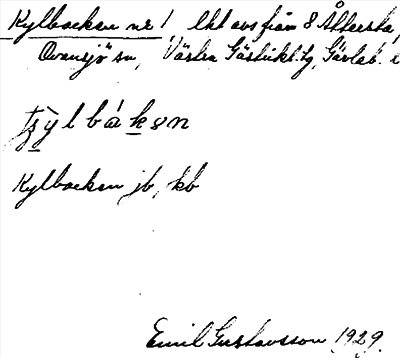 Kylbacken nr 1, lht avs från 8 Åttersta,
Ovansjö sn, Västra Gästrikl. tg, Gävleb. l
tʂy̆lbákən
Kylbacken jb, kb
Emil Gustavsson 1929.